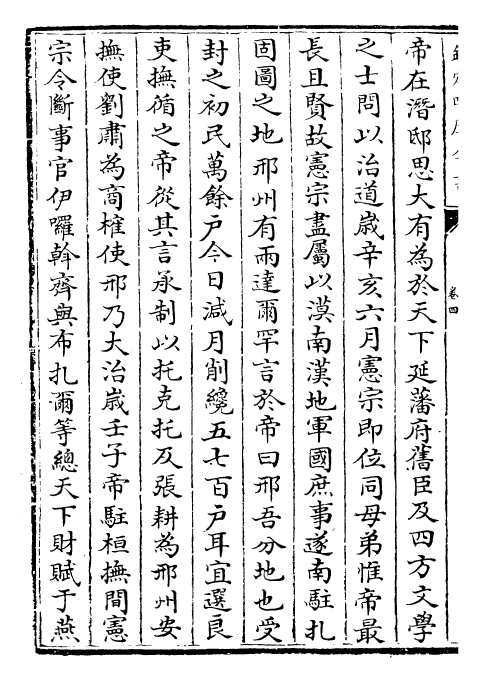 帝在潛邸思大有為於天下延藩府舊臣及四方文學
之士問以治道歲辛亥六月憲宗即位同母弟惟帝最
長且賢故憲宗盡屬以漠南漢地軍國庶事遂南駐扎
固圖之地邢州有兩達爾罕言於帝曰邢吾分地也受
封之初民萬餘戶今日減月削纔五七百戶耳宜選良
吏撫循之帝從其言承制以托克托及張耕為邢州安
撫使劉肅為商榷使邢乃大治歲壬子帝駐桓撫間憲
宗令斷事官伊囉斡齊與布扎爾等總天下財賦于燕
卷四